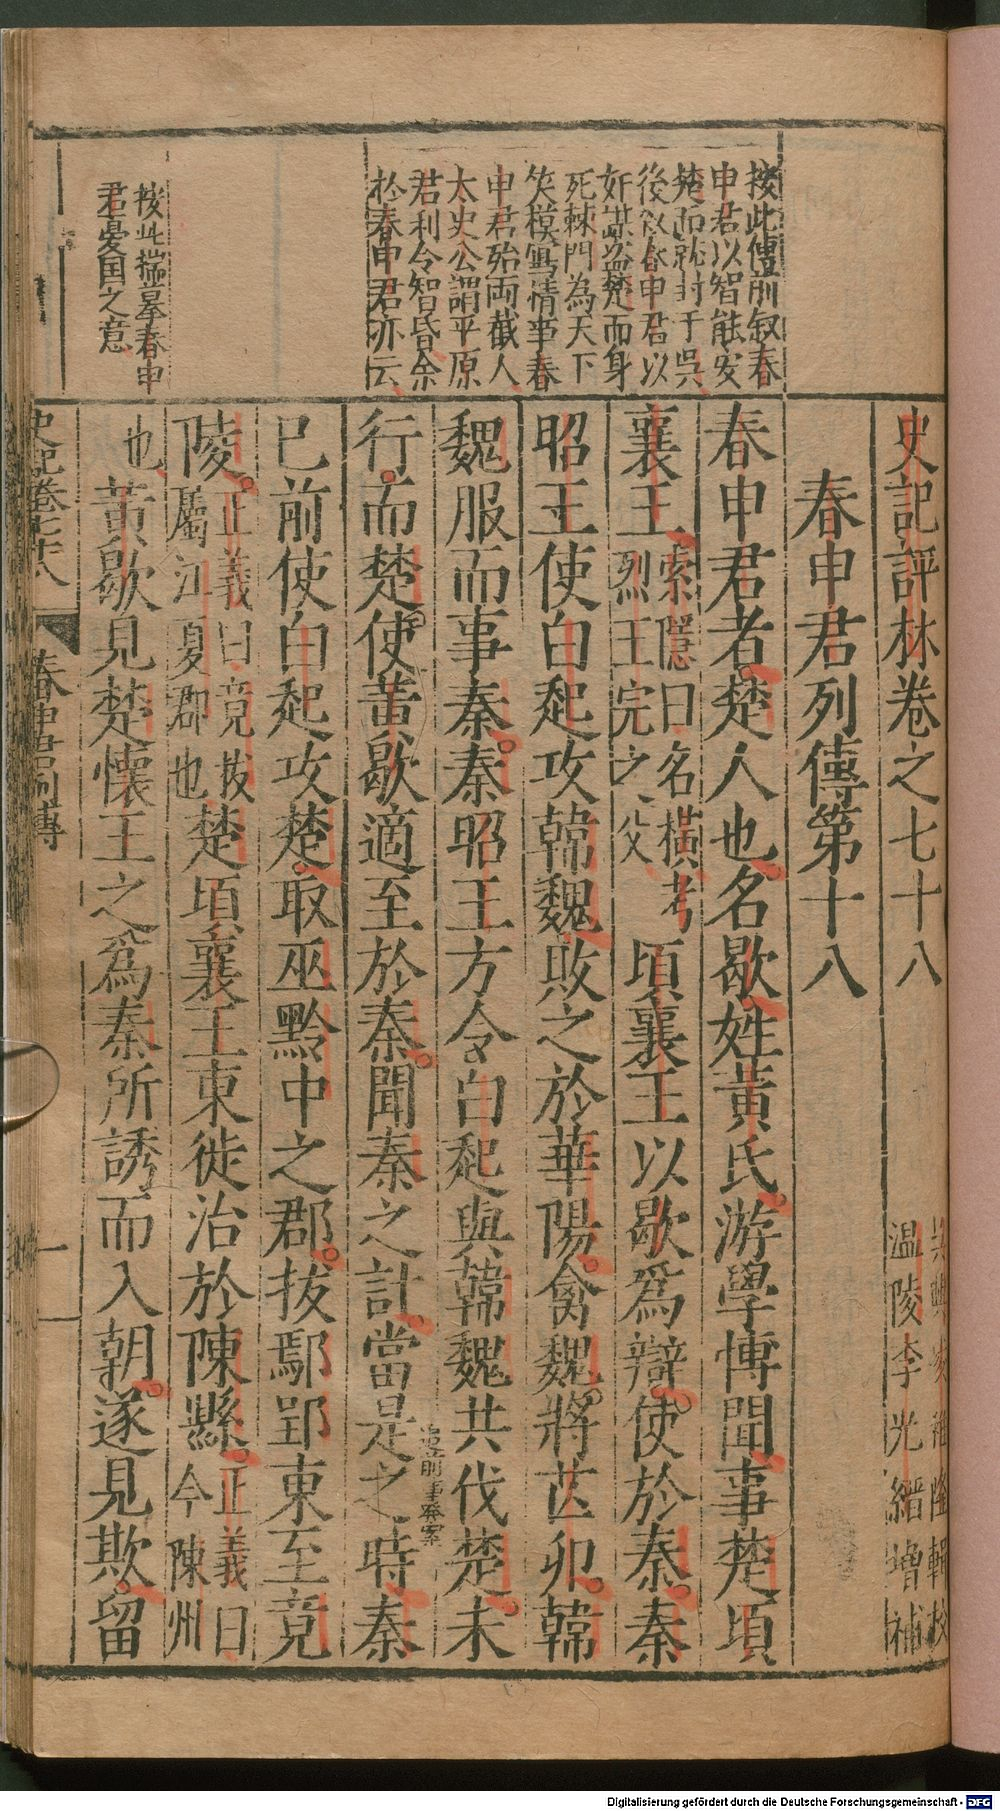 史記評林卷之七十八
吳興凌稚隆輯校
溫陵李光縉增補
春申君列傳第十八
春申君者楚人也名歇姓黃氏游學博聞事楚頃
襄王索隱曰名橫考烈王完之父頃襄王以歇爲辯使於秦秦
昭王使白起攻韓魏敗之於華陽禽魏將芒卯韓
魏服而事秦秦昭王方令白起與韓魏共伐楚未
行而楚使黃歇適至於秦聞秦之計當是之時秦
追前事發案
已前使白起攻楚取巫黔中之郡拔鄢郢東至竟
陵正義曰竟陵屬江夏郡也楚頃襄王東徙治於陳縣正義曰今陳州
也黃歇見楚懷王之爲秦所誘而入朝遂見欺留
按此傳前叙春
申君以智能安
楚而就封于吳
後叙春申君以
奸謀盜楚而身
死棘門為天下
笑模寫情事春
申君殆兩截人
太史公謂平原
君利令智昏余
於春申君亦云
按此揣摹春申
君憂国之意
史記卷七十八
春申君列傳
一
Digitalisierung gefördert durch die Deutsche Forschungsgemeinschaft - DFG